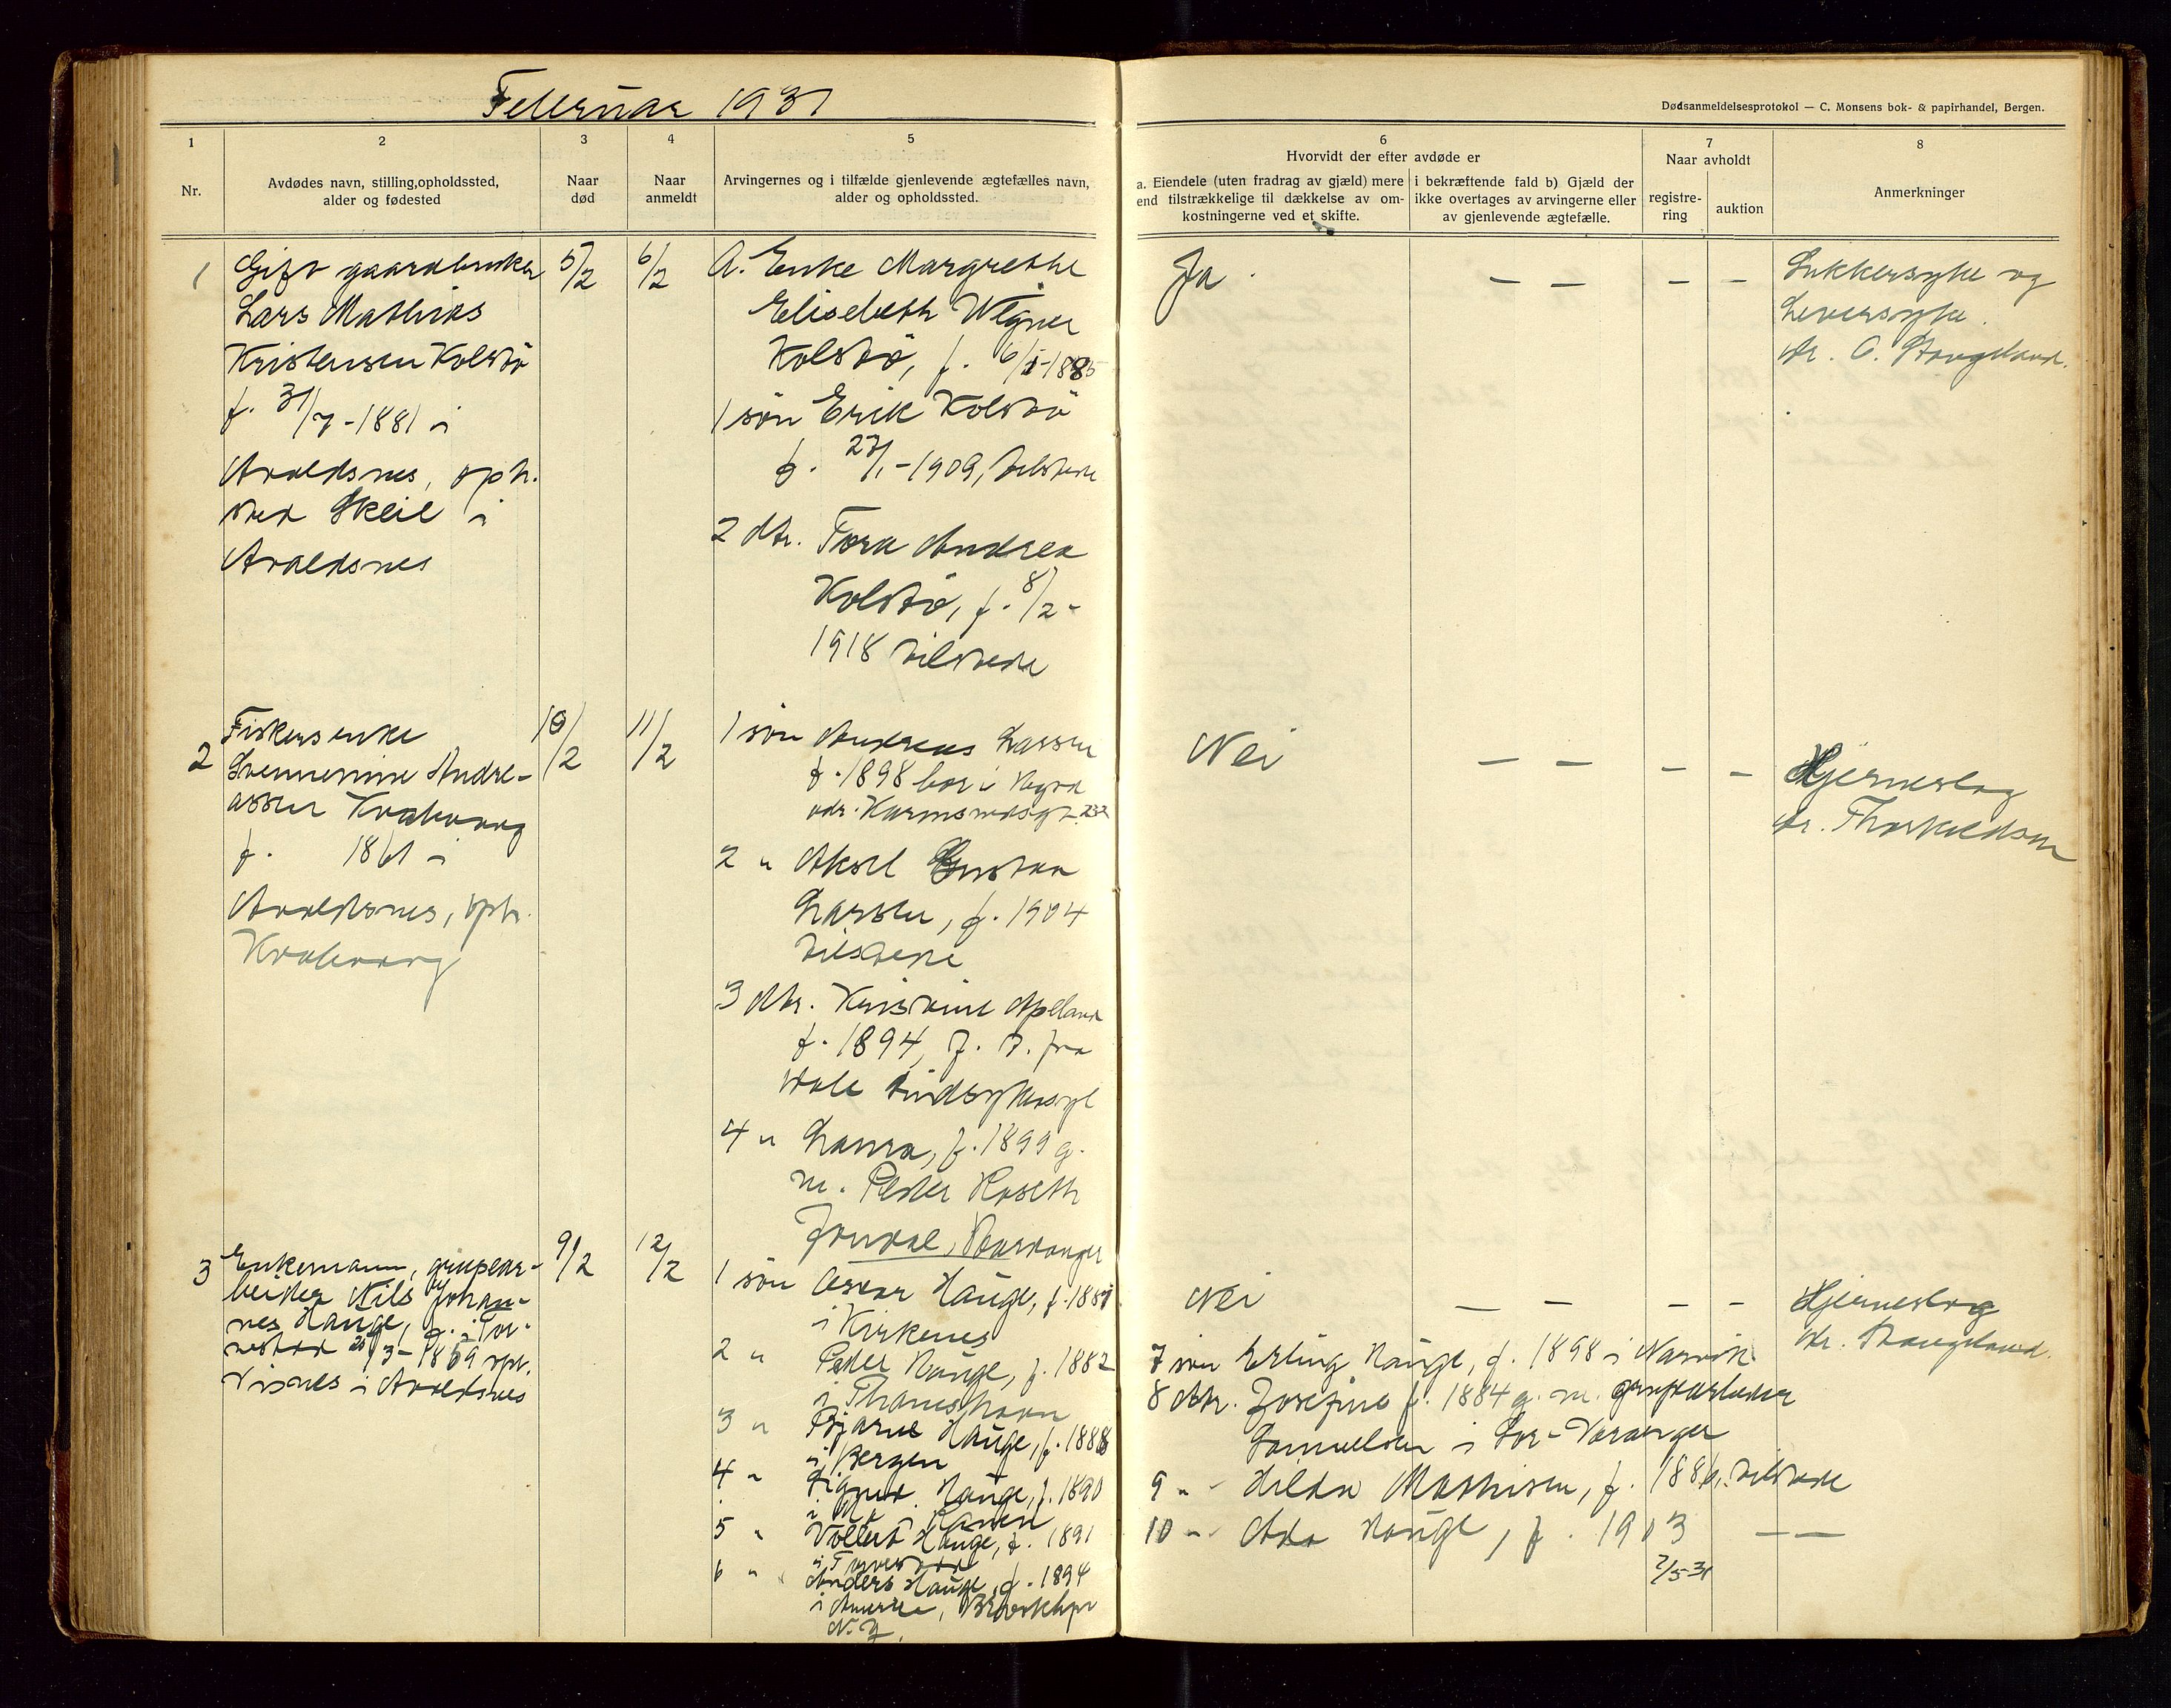 Februar 1931
Dødsanmeldelsesprotokol — C. Monsens bok- & papirhandel, Bergen.
1
Nr.
2
Avdødes navn, stilling,opholdssted,
alder og fødested
3
Naar
død
4
Naar
anmeldt
5
Arvingernes og i tilfælde gjenlevende ægtefælles navn,
alder og opholdssted.
6
Hvorvidt der efter avdøde er
a. Eiendele (uten fradrag av gjæld) mere
end tilstrækkelige til dækkelse av om-
kostningerne ved et skifte.
i bekræftende fald b) Gjæld der
ikke overtages av arvingerne eller
av gjenlevende ægtefælle.
7
Naar avholdt
registre-
ring
auktion
8
Anmerkninger
1
Gift gaardbruker
Lars Mathias
Kristensen Kolstø
f. 31/7-1881 i
Avaldsnes, oph.
sted Skeie i
Avaldsnes
5/2
6/2
A. Enke Margrethe
Elisebeth Wegner
Kolstø, f. 6/1-1885
1 søn Erik Kolstø
f. 27/1-1909, tilstede
2 dtr. Tora Andrea
Kolstø, f. 8/2-
1918 tilstede
Ja
— —
— —
Sukkersyke og
Leversyke.
dr. O. Stangeland.
2
Fiskersenke
Svennemine Andre-
assen Kvalevaag
f. 1861 i
Avaldsnes, oph.
Kvalevaag
10/2
11/2
1 søn Andreas Larsen
f. 1898 bor i Hgsd
adr. Karmsundsgt. 232
2 " Aksel Gustav
Larsen, f. 1904
tilstede
3 dtr. Kristine Apeland
f. 1894, f. t. fra
Vale Sindsykeasyl
4 " Laura, f. 1899 g.
m. Peder Haseth
Jondal, Hardanger
Nei
— —
— —
Hjerneslag
dr. Thorkildsen
3
Enkemann, grubear-
beider Nils Johan-
nes Hauge, f. i Tor-
vestad 25/3-1859 oph.
Visnes i Avaldsnes
9/2
12/2
1 søn Oscar Hauge, f. 1881
i Kirkenes
2 " Peder Hauge, f. 1882
i Thamshavn
3 " Bjarne Hauge, f. 1888
i Bergen
4 " Sigurd Hauge, f. 1890
i Mo i Ranen
5 " Vollert Hauge, f. 1891
i Torvestad
6 " Anders Hauge, f. 1894
i Amerika, Brooklyn
N.Y.
Nei
— —
— —
Hjerneslag
dr. Stangeland.
7 søn Erling Hauge, f. 1898 i Narvik
8 dtr. Josefine f. 1884 g. m. grubearbeider
Samuelsen i Sør-Varanger
9 " Hilda Mathisen, f. 1886, tilstede
10 " Ada Hauge, f. 1903 — —
2/5-31